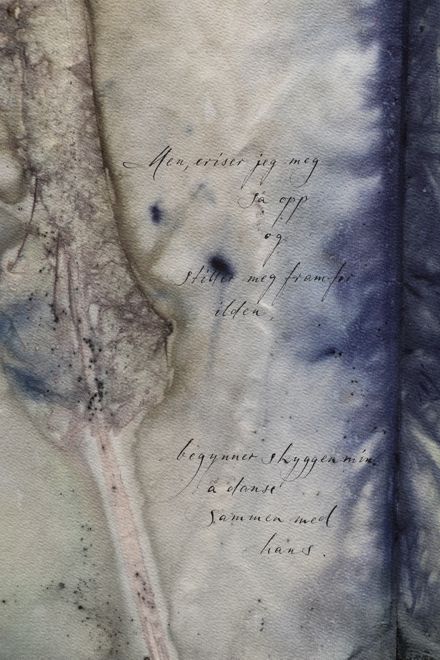 Men, reiser jeg meg
så opp
og
stiller meg framfor
ilden,
begynner skyggen min
å danse
sammen med
hans.